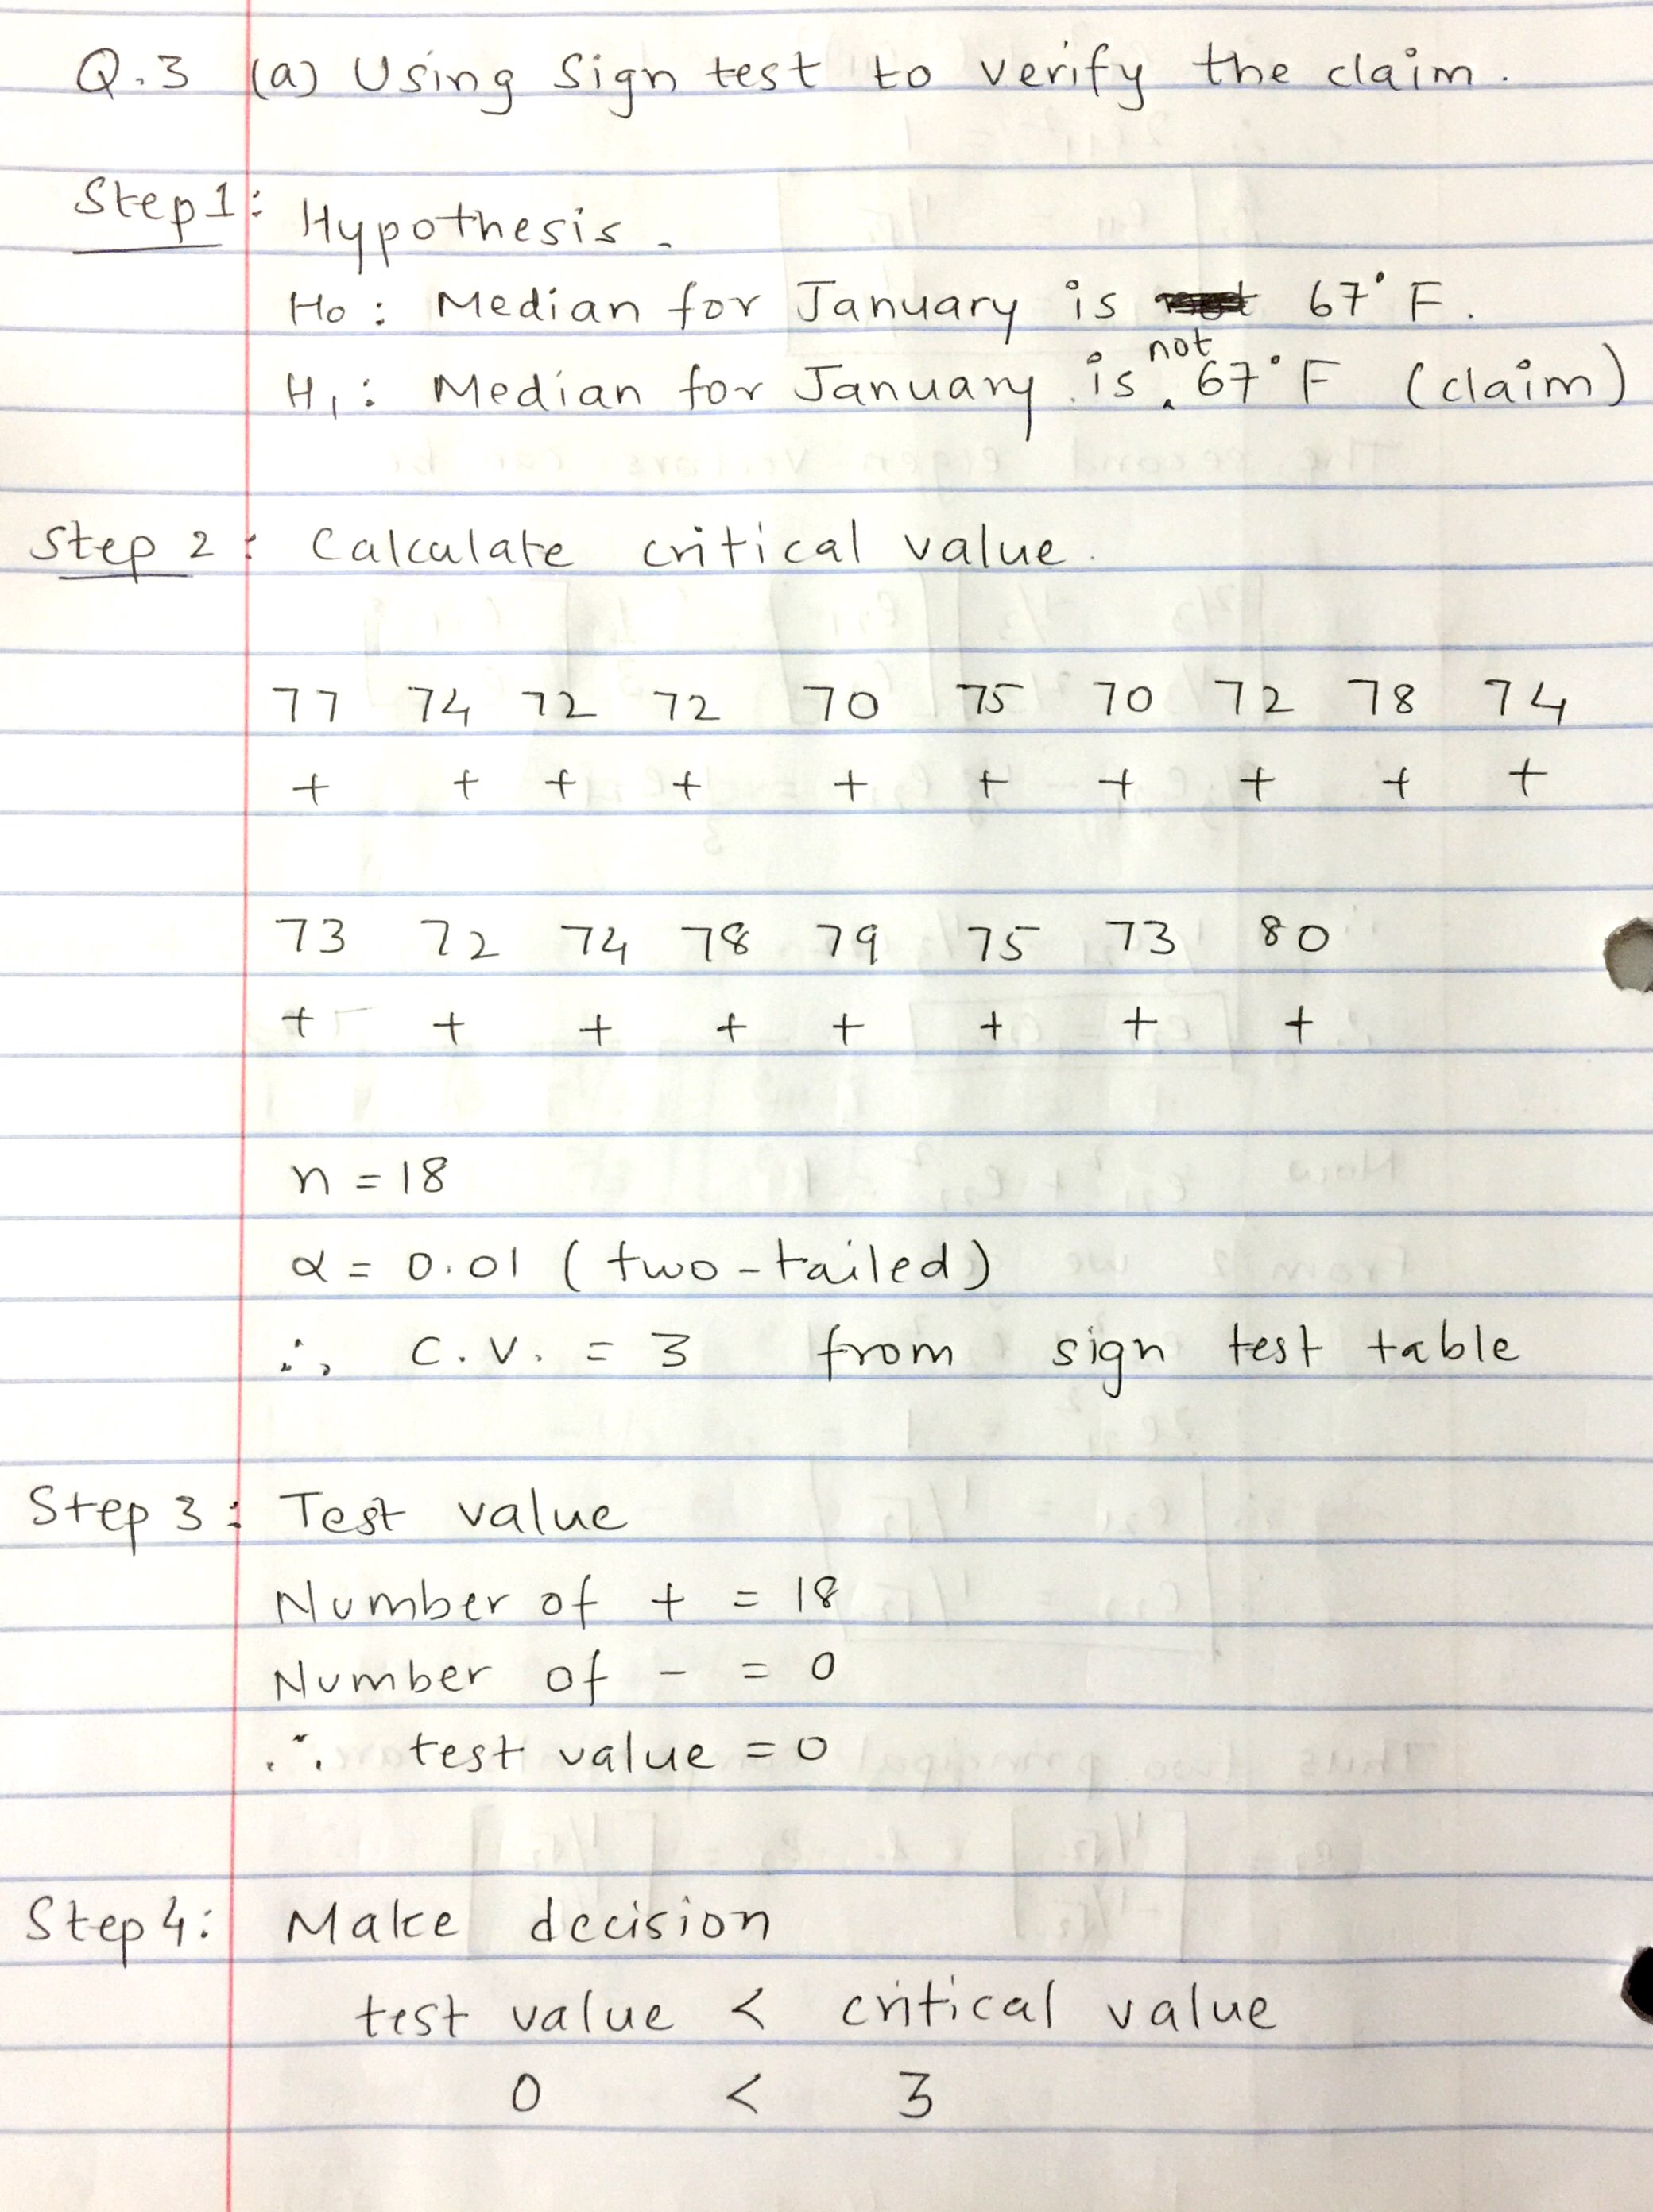 Q.3 (a) Using Sign test to verify the claim.
Step 1: Hypothesis.
H0: Median for January is 67°F.
H1: Median for January is not 67°F (claim)
Step 2: Calculate critical value.
77 74 72 72 70 75 70 72 78 74
+ + + + + + + + + +
73 72 74 78 79 75 73 80
+ + + + + + + +
n = 18
α = 0.01 (two-tailed)
∴, C.V. = 3 from sign test table
Step 3: Test value
Number of + = 18
Number of - = 0
∴ test value = 0
Step 4: Make decision
test value < critical value
0 < 3